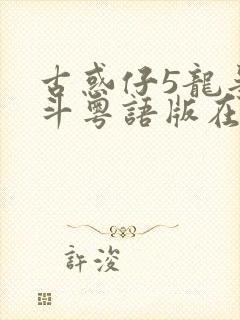 古惑仔5龍
斗粵語版在
許浚